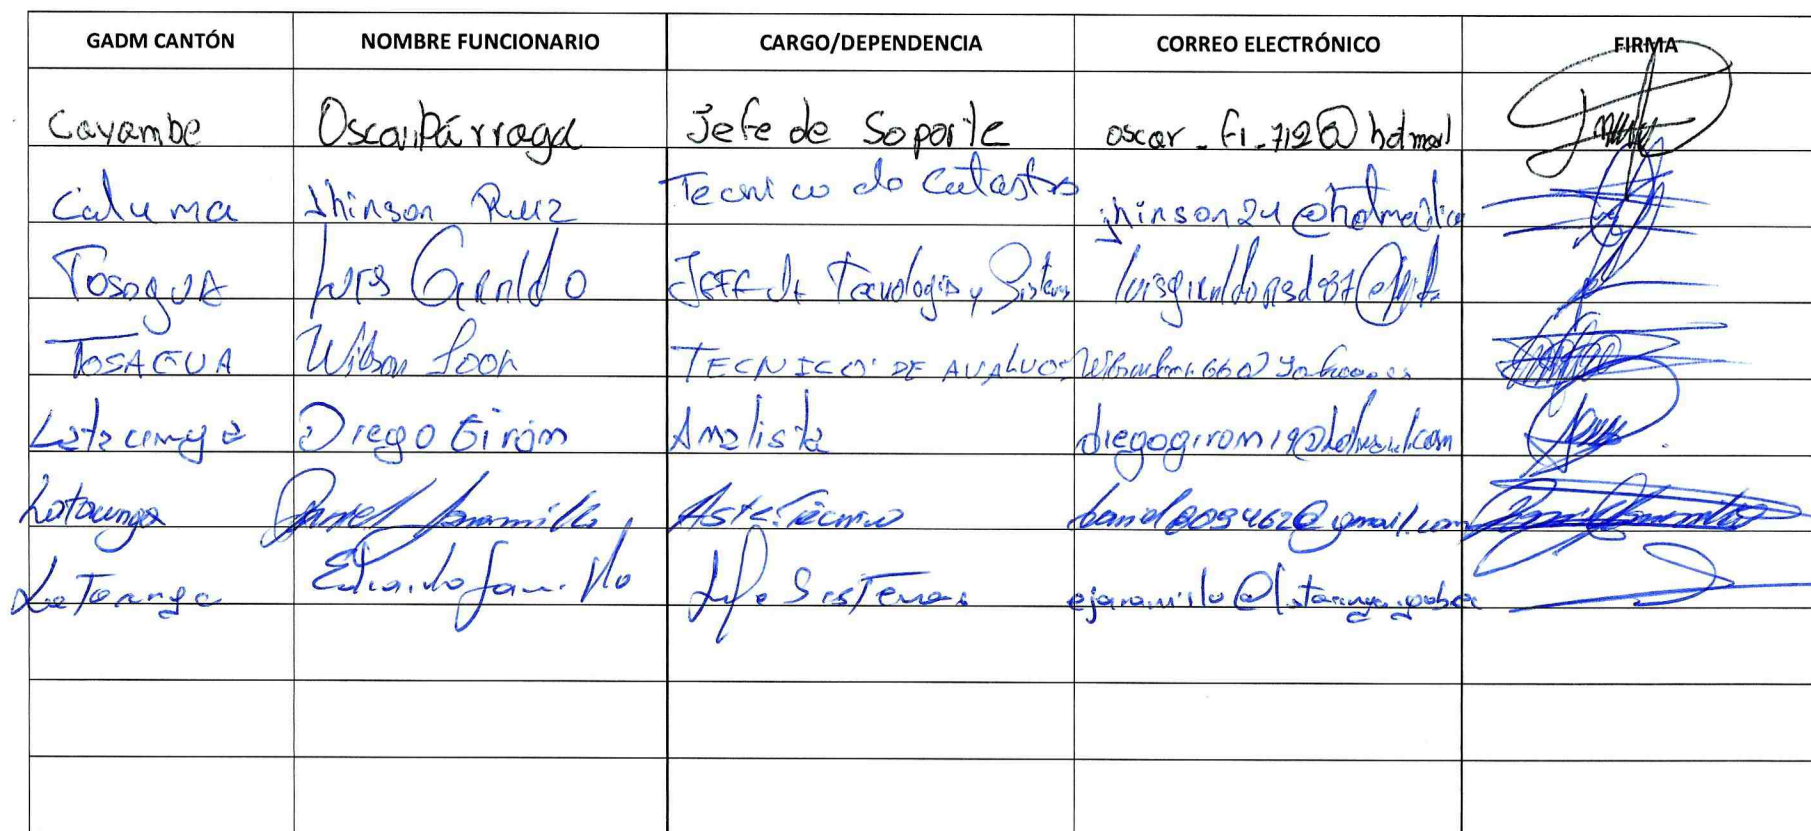 GADM CANTÓN NOMBRE FUNCIONARIO CARGO/DEPENDENCIA CORREO ELECTRÓNICO FIRMA
Cayambe Oscar Párraga Jefe de Soporte oscar_fi_712@hotmail
Caluma Jhinson Ruiz Tecnico de Catastro jhinson24@hotmail.co
Tosagua Luis Giraldo Jefe de Tecnologia y Sistemas
TOSAGUA Wilson Loor TECNICO DE AVALUOS
Latacunga Diego Girón Analista diegogiron19@hotmail.com
Latacunga Daniel Jaramillo Aste. Técnico daniel809462@gmail.com
Latacunga Eduardo Jaramillo Jefe Sistemas ejaramillo@latacunga.gob.ec